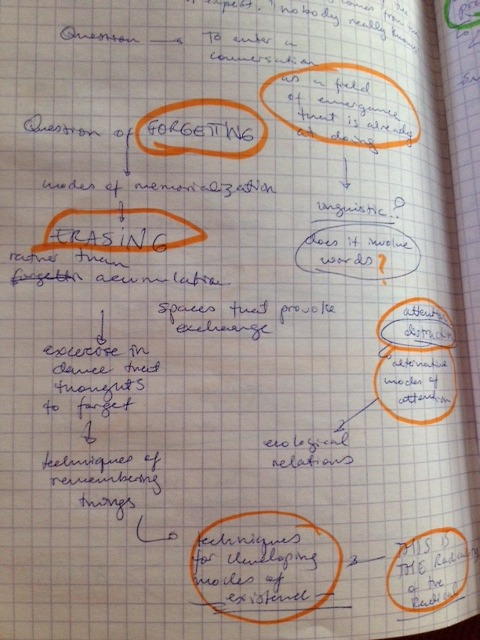 expert. nobody really knows
Question → To enter a
conversation
as a field
of emergence
that is already
at doing
Question of FORGETTING
modes of memorialization
linguistic?
does it involve
words?
ERASING
rather than
acumulation
spaces that provoke
exchange
excercise in
dance that
thoughts
to forget
alternative
modes of
attention
ecological
relations
techniques of
remembering
things
techniques
for developing
modes of
existend
THIS IS
THE Radical
of the
Radical